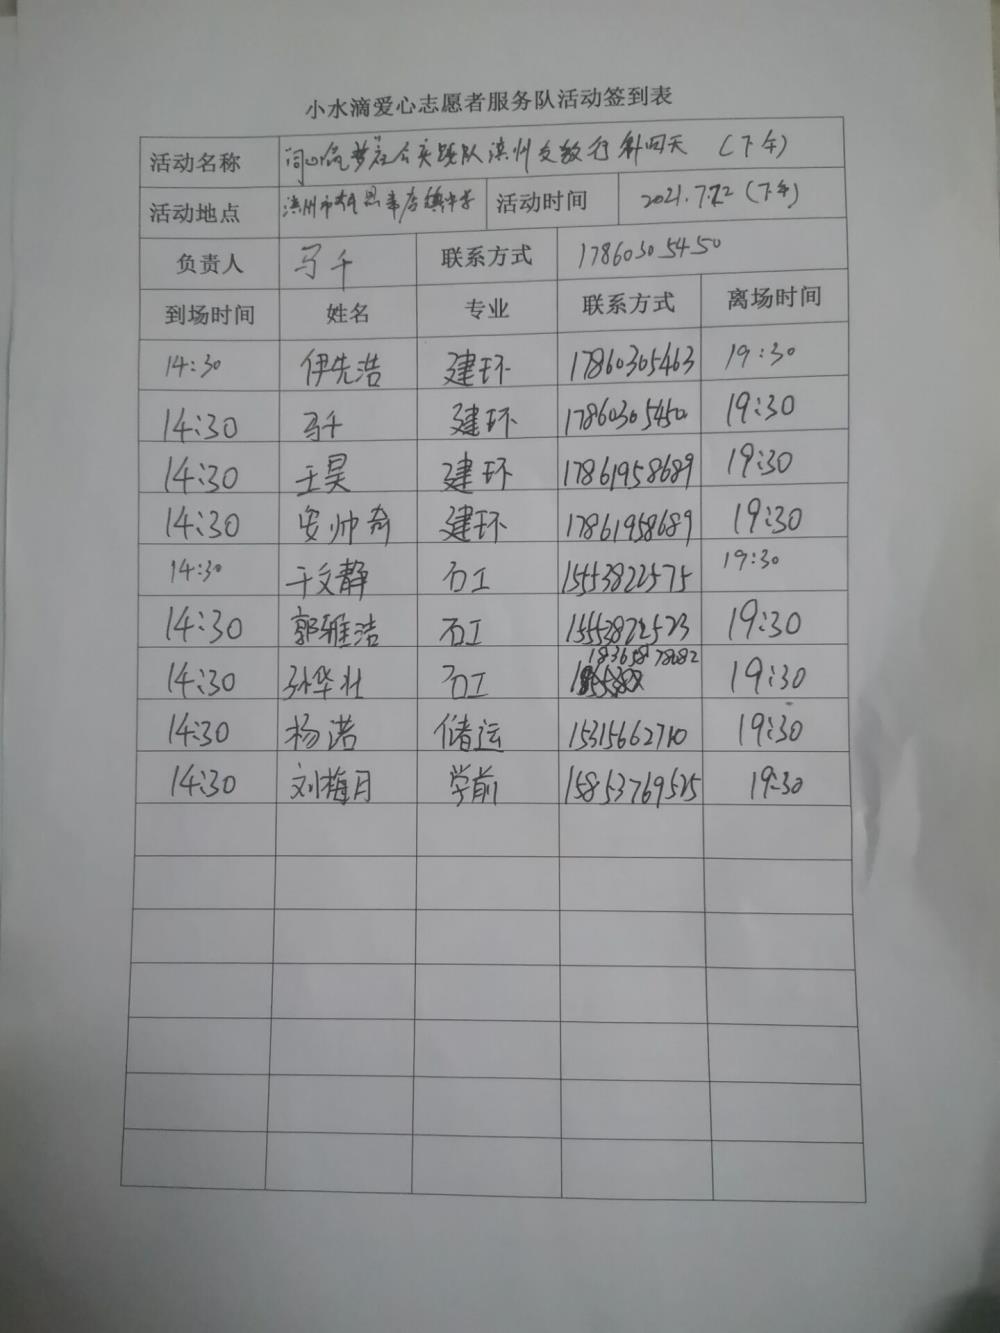 小水滴爱心志愿者服务队活动签到表
活动名称 同心筑梦社会实践队滨州支教行 第四天 （下午）
活动地点 滨州市 李店镇中学 活动时间 2021.7.12（下午）
负责人 马千 联系方式 17860305450
到场时间 姓名 专业 联系方式 离场时间
14:30 伊先浩 建环 17860305463 19:30
14:30 马千 建环 17860305450 19:30
14:30 王昊 建环 17861958689 19:30
14:30 安帅奇 建环 17861958689 19:30
14:30 于文静 石工 1553822575 19:30
14:30 郭雅洁 石工 1553822523 19:30
14:30 孙华壮 石工 18365878082 19:30
14:30 杨诺 储运 15315662710 19:30
14:30 刘梅月 学前 15853769525 19:30